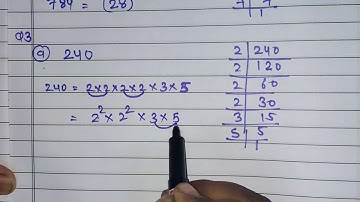 784 = (28)²
Q3
a) 240
240 = 2×2×2×2×3×5
= 2² × 2² × 3 × 5
2 | 240
2 | 120
2 | 60
2 | 30
3 | 15
5 | 5
1